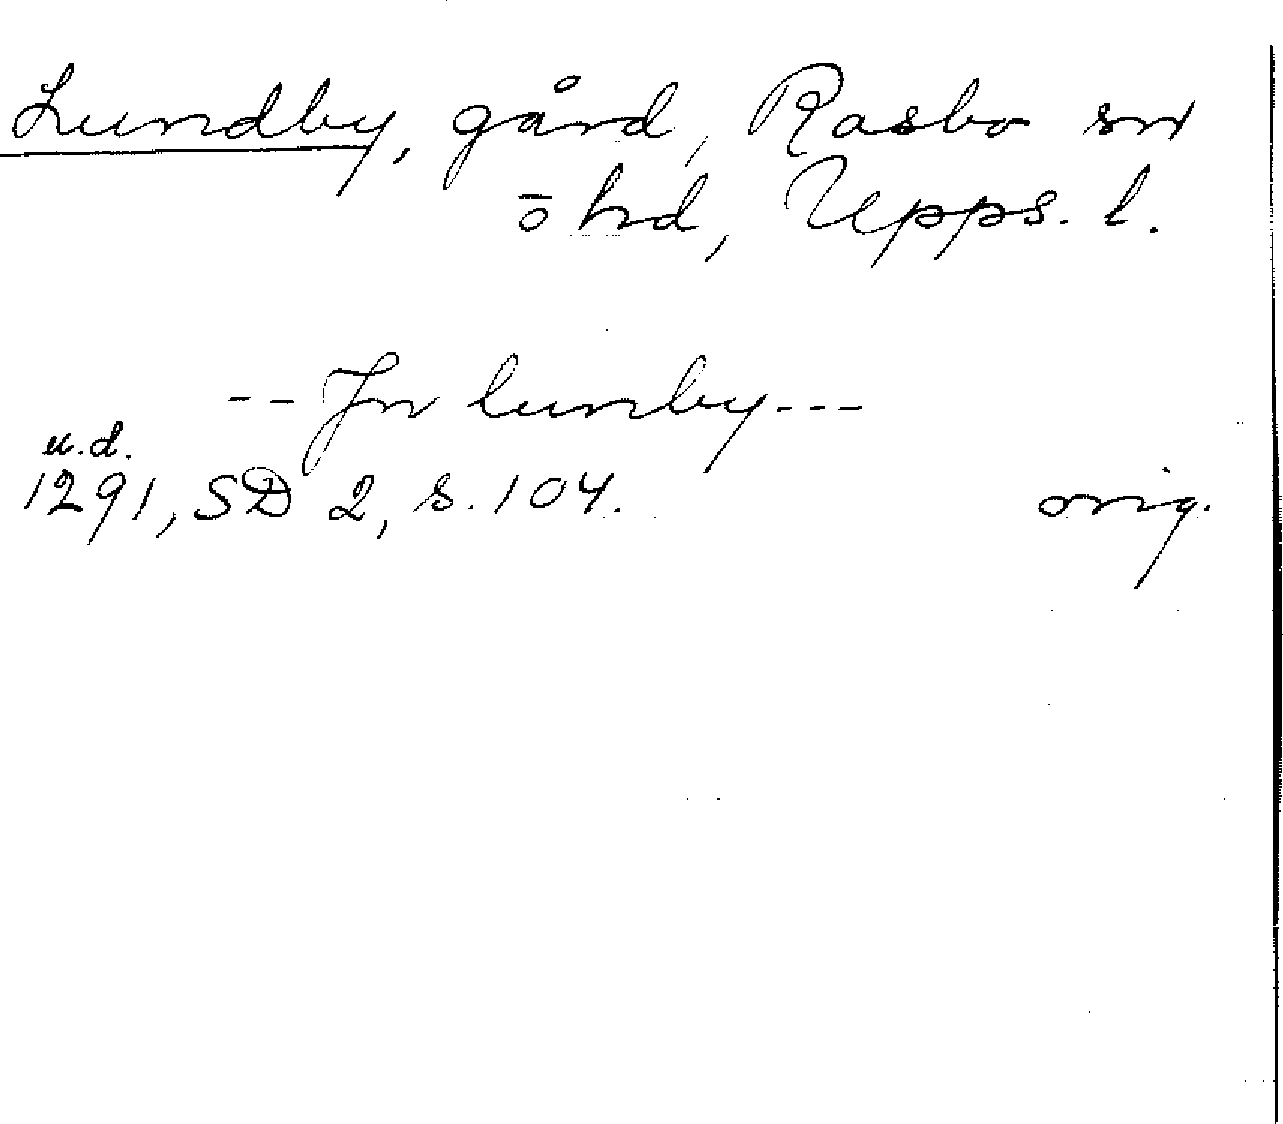 Lundby, gård, Rasbo sn
o hd, Upps. l.
-- Jn lunby ---
u.d.
1291, SD 2, s. 104. orig.